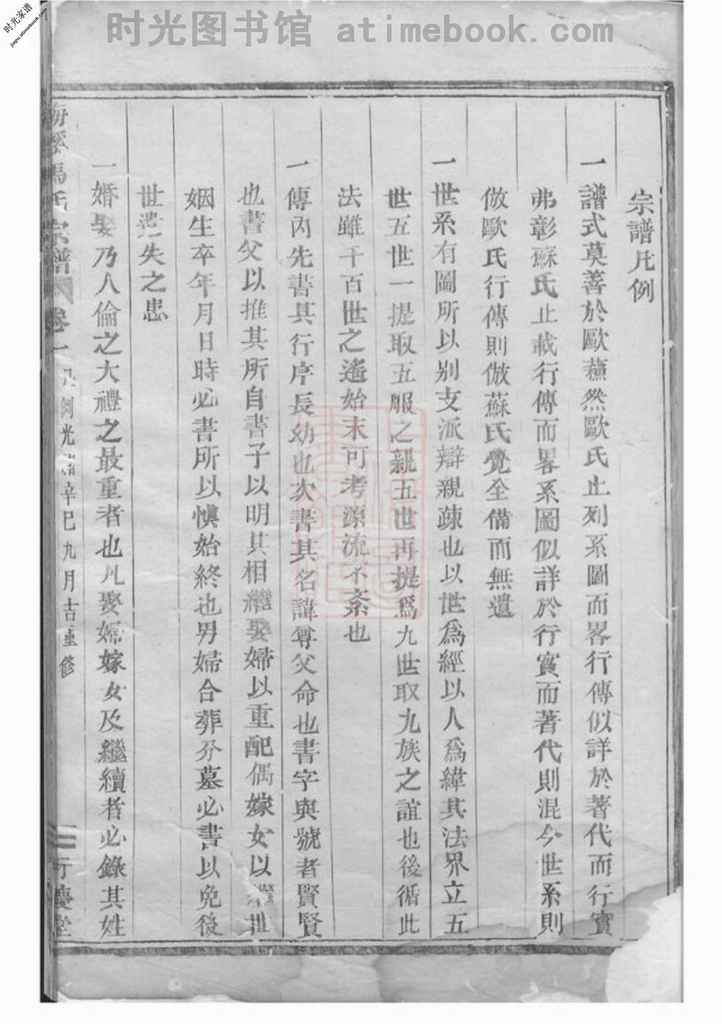 时光图书馆 atimebook.com
时光家谱
宗譜凡例
一譜式莫善於歐蘇然歐氏止列系圖而畧行傳似詳於著代而行實
弗彰蘇氏止載行傳而畧系圖似詳於行實而著代則混今世系則
倣歐氏行傳則倣蘇氏覺全備而無遺
一世系有圖所以别支派辯親疎也以世爲經以人爲緯其法界立五
世五世一提取五服之親五世再提爲九世取九族之誼也後循此
法雖千百世之遙始末可考源流不紊也
一傳內先書其行序長幼也次書其名諱尊父命也書字與號者賢賢
也書父以推其所自書子以明其相繼娶婦以重配偶嫁女以聯世
姻生卒年月日時必書所以慎始終也男婦合葬分墓必書以免後
世遺失之患
一婚娶乃人倫之大禮之最重者也凡娶婦嫁女及繼續者必錄其姓
馮氏宗譜 卷一 凡例光緒辛巳九月吉重修 二 行慶堂